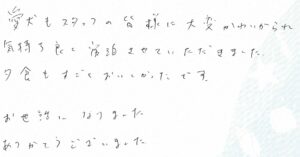 愛犬もスタッフの皆様に大変かわいがられ
気持ち良く宿泊させていただきました。
夕食もすごくおいしかったです。
お世話になりました
ありがとうございました